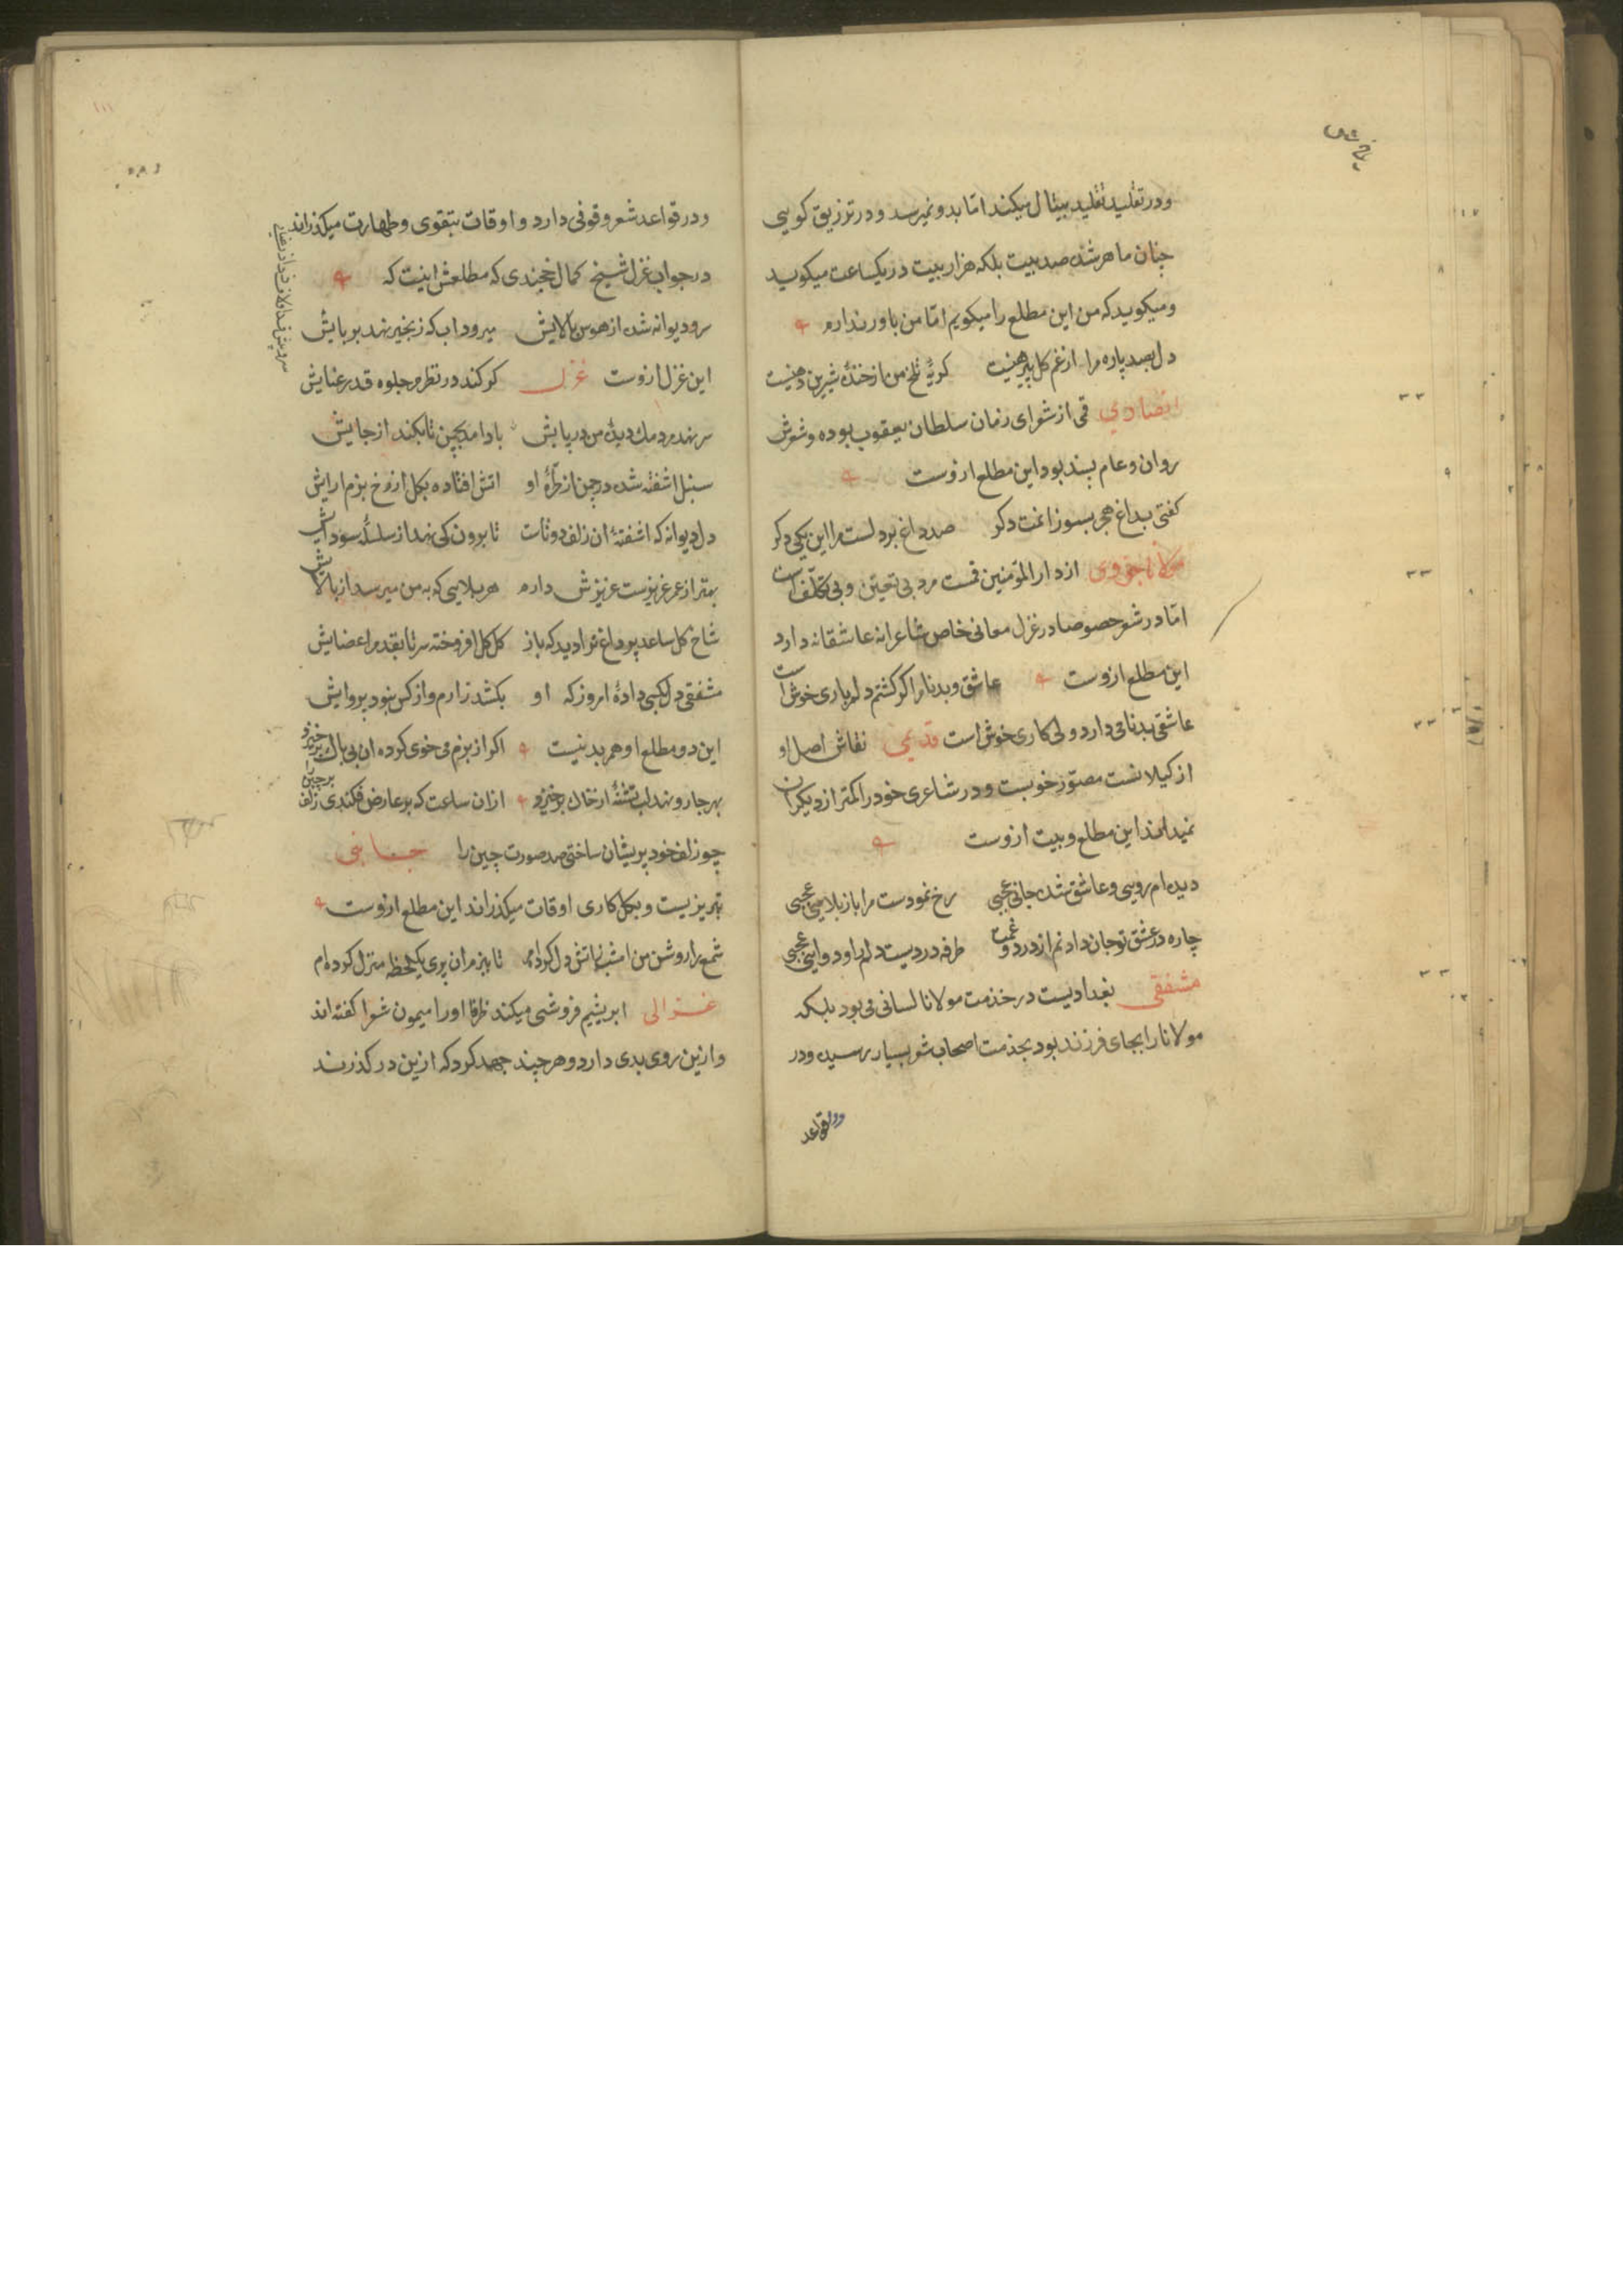 ودر تقلید تقلید بیتال میکند اما بدو نمیرسد و در ترزیق کویی
چنان ماهر شده صد بیت بلکه هزار بیت در یکساعت میکوید
ومیکوید که من این مطلع را میکویم اما من باور ندارم
دل بصد پاره مرا از غم کل پیرهنیست کریهٔ تلخ من از خندهٔ شیرین دهنیست
انصاری قمی از شعرای زمان سلطان یعقوب بوده و شعرش
روان و عام پسند بود این مطلع ازوست
کفتی بداغ هجر بسوزانمت دکر صد داغ بر دلست مرا این یکی دکر
مولانا حزوی از دار المؤمنین قمست مرد بی تعین و بی تکلف است
اما در شعر خصوصا در غزل معانی خاص شاعرانه عاشقانه دارد
این مطلع ازوست عاشق و بدنام اکر کشتم دلم باری خوش است
عاشقی بدنامی دارد ولی کاری خوش است قدیمی نقاش اصل او
از کیلانست مصور خوبست و در شاعری خود را کمتر از دیکران
نمیداند این مطلع و بیت ازوست
دیده ام رویی و عاشق شده جانی عجبی رخ نمودست مرا باز بلایی عجبی
چاره در عشق تو جان دادنم از درد و غمت طرفه دردیست دلم را و دوایی عجبی
مشفقی بغدادیست در خدمت مولانا لسانی می بود بلکه
مولانا را بجای فرزند بود بخدمت اصحاب شعر بسیار رسیده و در
ودر قواعد
ودر قواعد شعر وقوفی دارد و اوقات بتقوی و طهارت میکذراند
در جواب غزل شیخ کمال خجندی که مطلعش اینست که
سرو دیوانه شده از هوس بالایش میرود اب که زنجیر نهد بر پایش
این غزل ازوست غزل کر کند در نظرم جلوه قد رعنایش
سر نهد مردمک دیدهٔ من در پایش باد امد بچمن تا بکند از جایش
سنبل اشفته شده در چمن از طرهٔ او اتش افتاده بکل از رخ بزم ارایش
دل دیوانه که اشفتهٔ ان زلف دوتاست تا برون کی نهد از سلسلهٔ سودایش
بهتر از عمر عزیزست عزیزش دارم هر بلایی که به من میرسد از بالایش
شاخ کل ساعد پر داغ ترا دید که باز کل کل افروخته سر تا بقدم اعضایش
مشفقی دل بکسی دادهٔ امروز که او بکشد زارم و از کس نبود پروایش
این دو مطلع او هم بد نیست اکر از بزم می خوی کرده ان بی باک برخیزد
بهر جا رو نهد لب تشنهٔ از خاک برخیزد ازان ساعت که بر عارض فکندی زلف پرچین را
چو زلف خود پریشان ساختی صد صورت چین را
تبریزیست و بکل کاری اوقات میکذراند این مطلع ازوست
شمع را روشن من امشب زاتش دل کرده ام تا ببزم ان پری یکلحظه منزل کرده ام
غزالی ابریشم فروشی میکند ظرفا او را میمون شعرا کفته اند
و ازین روی بدی دارد و هر چند جهد کرد که ازین در کذرند